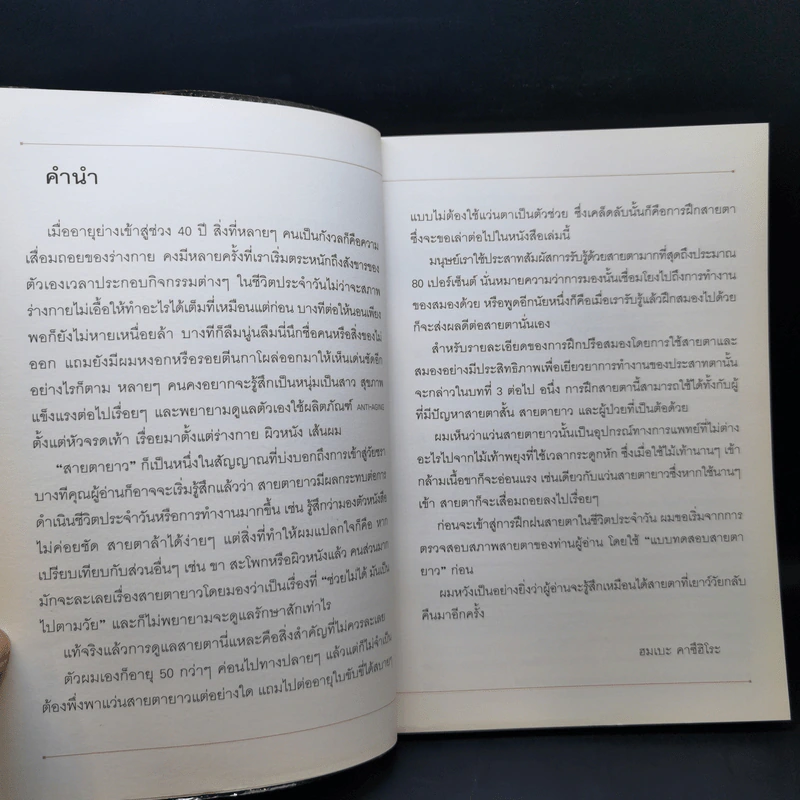 คำนำ
เมื่ออายุย่างเข้าสู่ช่วง 40 ปี สิ่งที่หลายๆ คนเป็นกังวลก็คือความ
เสื่อมถอยของร่างกาย คงมีหลายครั้งที่เราเริ่มตระหนักถึงสังขารของ
ตัวเองเวลาประกอบกิจกรรมต่างๆ ในชีวิตประจำวันไม่ว่าจะสภาพ
ร่างกายไม่เอื้อให้ทำอะไรได้เต็มที่เหมือนแต่ก่อน บางทีต่อให้นอนเพียง
พอก็ยังไม่หายเหนื่อยล้า บางทีก็ลืมนู่นลืมนี่นึกชื่อคนหรือสิ่งของไม่
ออก แถมยังมีผมหงอกหรือรอยตีนกาโผล่ออกมาให้เห็นเด่นชัดอีก
อย่างไรก็ตาม หลายๆ คนคงอยากจะรู้สึกเป็นหนุ่มเป็นสาว สุขภาพ
แข็งแรงต่อไปเรื่อยๆ และพยายามดูแลตัวเองใช้ผลิตภัณฑ์ ANTI-AGING
ตั้งแต่หัวจรดเท้า เรื่อยมาตั้งแต่ร่างกาย ผิวหนัง เส้นผม
“สายตายาว” ก็เป็นหนึ่งในสัญญาณที่บ่งบอกถึงการเข้าสู่วัยชรา
บางทีคุณผู้อ่านก็อาจจะเริ่มรู้สึกแล้วว่า สายตายาวมีผลกระทบต่อการ
ดำเนินชีวิตประจำวันหรือการทำงานมากขึ้น เช่น รู้สึกว่ามองตัวหนังสือ
ไม่ค่อยชัด สายตาล้าได้ง่ายๆ แต่สิ่งที่ทำให้ผมแปลกใจก็คือ หาก
เปรียบเทียบกับส่วนอื่นๆ เช่น ขา สะโพกหรือผิวหนังแล้ว คนส่วนมาก
มักจะละเลยเรื่องสายตายาวโดยมองว่าเป็นเรื่องที่ “ช่วยไม่ได้ มันเป็น
ไปตามวัย” และก็ไม่พยายามจะดูแลรักษาสักเท่าไร
แท้จริงแล้วการดูแลสายตานี่แหละคือสิ่งสำคัญที่ไม่ควรละเลย
ตัวผมเองก็อายุ 50 กว่าๆ ค่อนไปทางปลายๆ แล้วแต่ก็ไม่จำเป็น
ต้องพึ่งพาแว่นสายตายาวแต่อย่างใด แถมไปต่ออายุใบขับขี่ได้สบายๆ
แบบไม่ต้องใช้แว่นตาเป็นตัวช่วย ซึ่งเคล็ดลับนั้นก็คือการฝึกสายตา
ซึ่งจะขอเล่าต่อไปในหนังสือเล่มนี้
มนุษย์เราใช้ประสาทสัมผัสการรับรู้ด้วยสายตามากที่สุดถึงประมาณ
80 เปอร์เซ็นต์ นั่นหมายความว่าการมองนั้นเชื่อมโยงไปถึงการทำงาน
ของสมองด้วย หรือพูดอีกนัยหนึ่งก็คือเมื่อเรารับรู้แล้วฝึกสมองไปด้วย
ก็จะส่งผลดีต่อสายตานั่นเอง
สำหรับรายละเอียดของการฝึกปรือสมองโดยการใช้สายตาและ
สมองอย่างมีประสิทธิภาพเพื่อเยียวยาการทำงานของประสาทตานั้น
จะกล่าวในบทที่ 3 ต่อไป อนึ่ง การฝึกสายตานี้สามารถใช้ได้ทั้งกับผู้
ที่มีปัญหาสายตาสั้น สายตายาว และผู้ป่วยที่เป็นต้อด้วย
ผมเห็นว่าแว่นสายตายาวนั้นเป็นอุปกรณ์ทางการแพทย์ที่ไม่ต่าง
อะไรไปจากไม้เท้าพยุงที่ใช้เวลากระดูกหัก ซึ่งเมื่อใช้ไม้เท้านานๆ เข้า
กล้ามเนื้อขาก็จะอ่อนแรง เช่นเดียวกับแว่นสายตายาวซึ่งหากใช้นานๆ
เข้า สายตาก็จะเสื่อมถอยลงไปเรื่อยๆ
ก่อนจะเข้าสู่การฝึกฝนสายตาในชีวิตประจำวัน ผมขอเริ่มจากการ
ตรวจสอบสภาพสายตาของท่านผู้อ่าน โดยใช้ “แบบทดสอบสายตา
ยาว” ก่อน
ผมหวังเป็นอย่างยิ่งว่าผู้อ่านจะรู้สึกเหมือนได้สายตาที่เยาว์วัยกลับ
คืนมาอีกครั้ง
ฮมเบะ คาซึฮิโระ